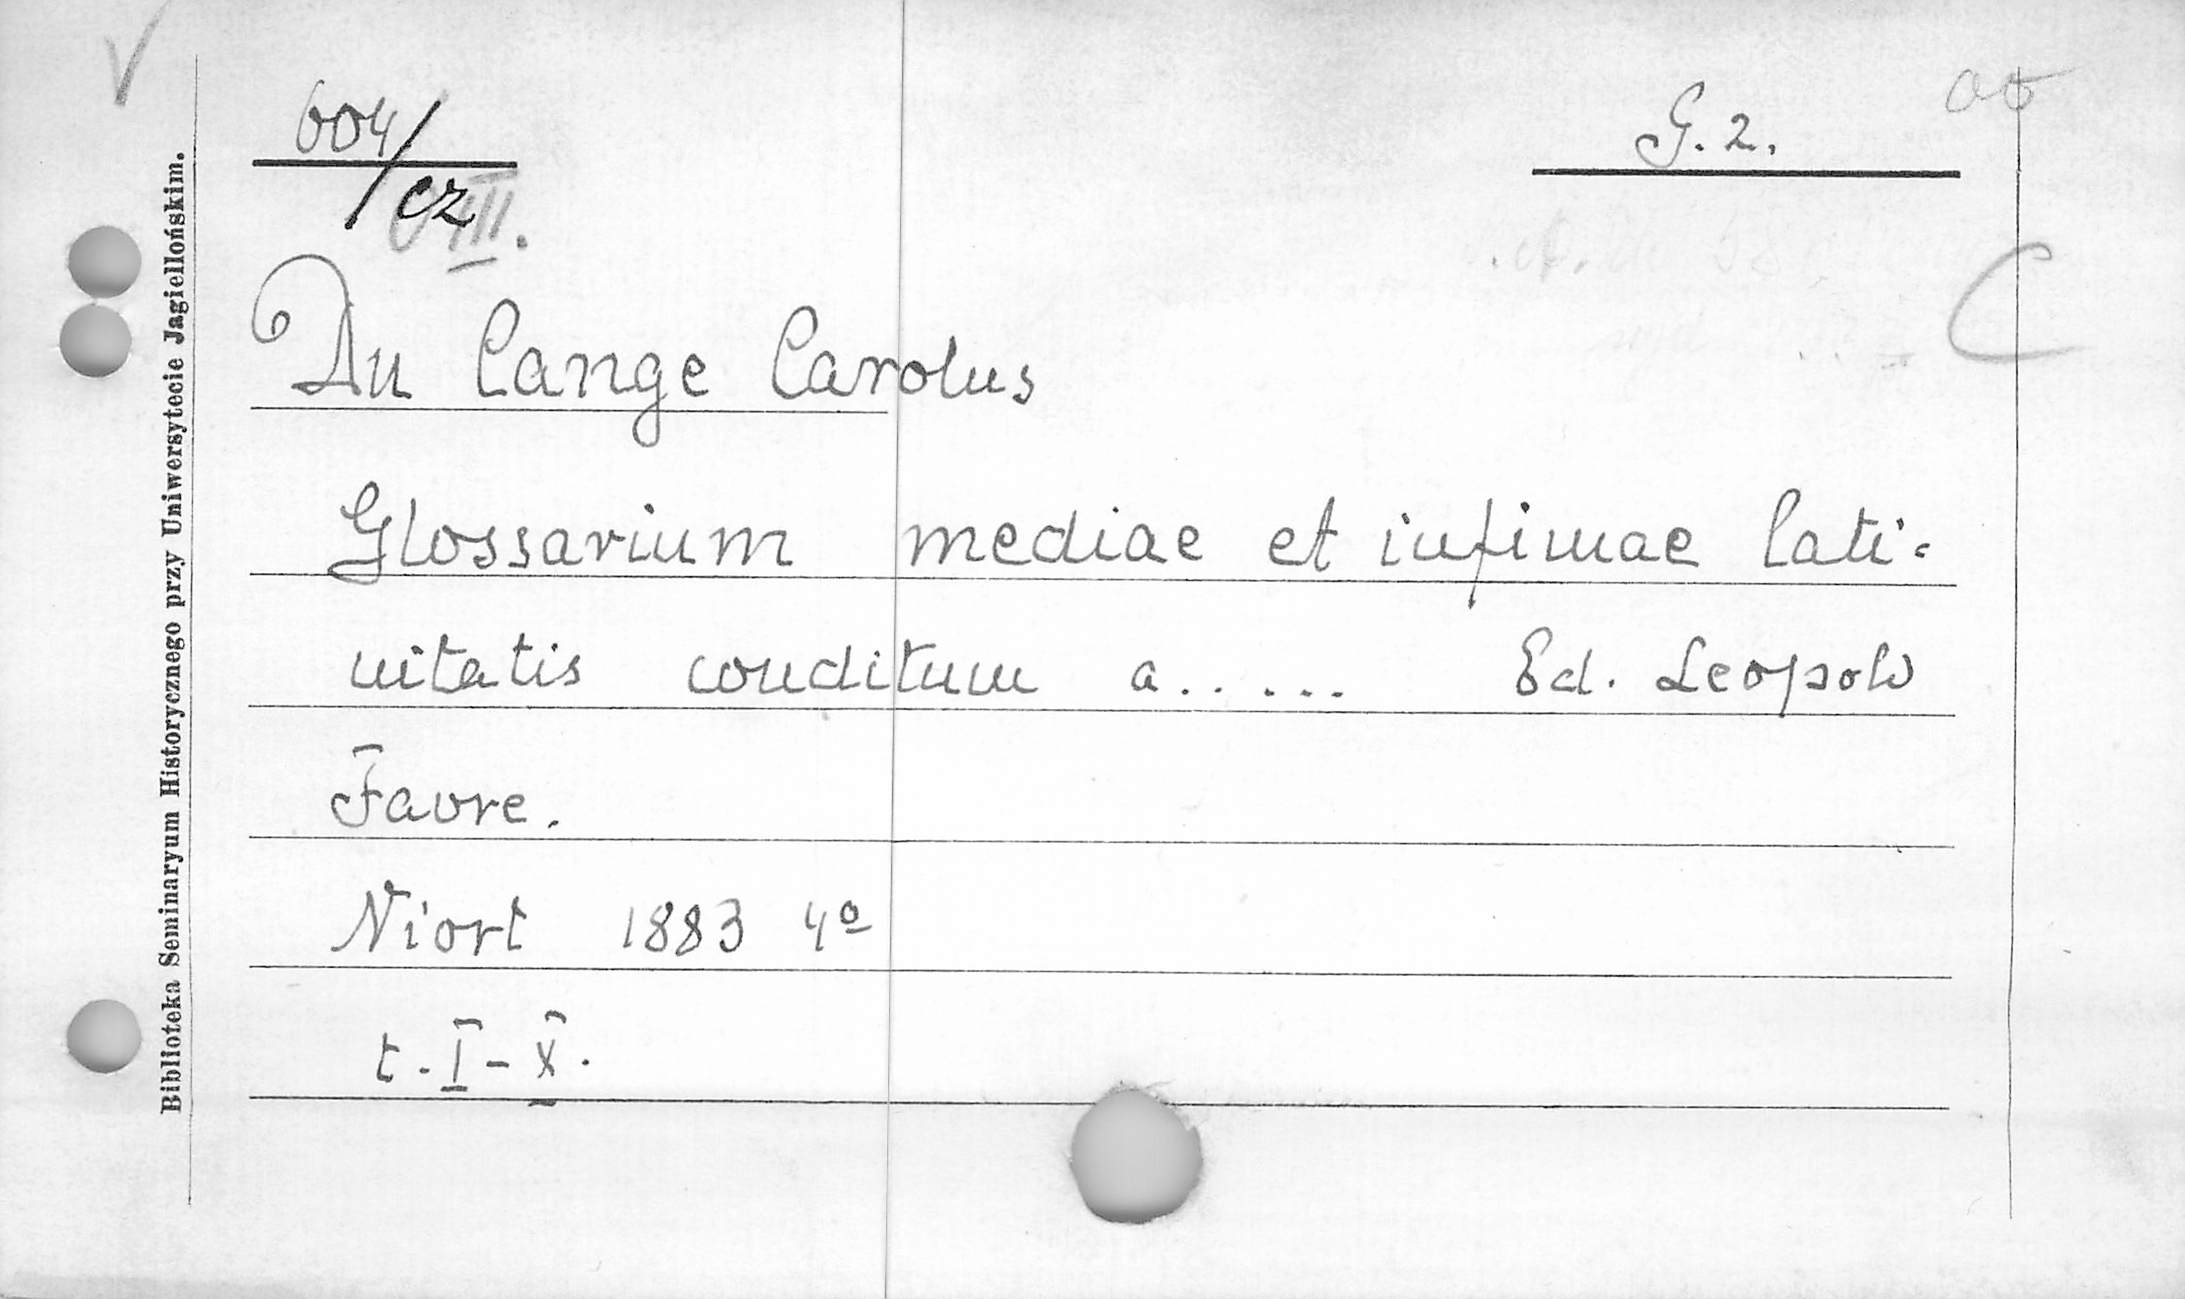 V
604/cz
VIII.
G. 2.
C
Du Cange Carolus
Glossarium mediae et infimae lati-
nitatis conditum a...... Ed. Leopold
Favre.
Niort 1883 4º
t. I - X.
Biblioteka Seminaryum Historycznego przy Uniwersytecie Jagiellońskim.